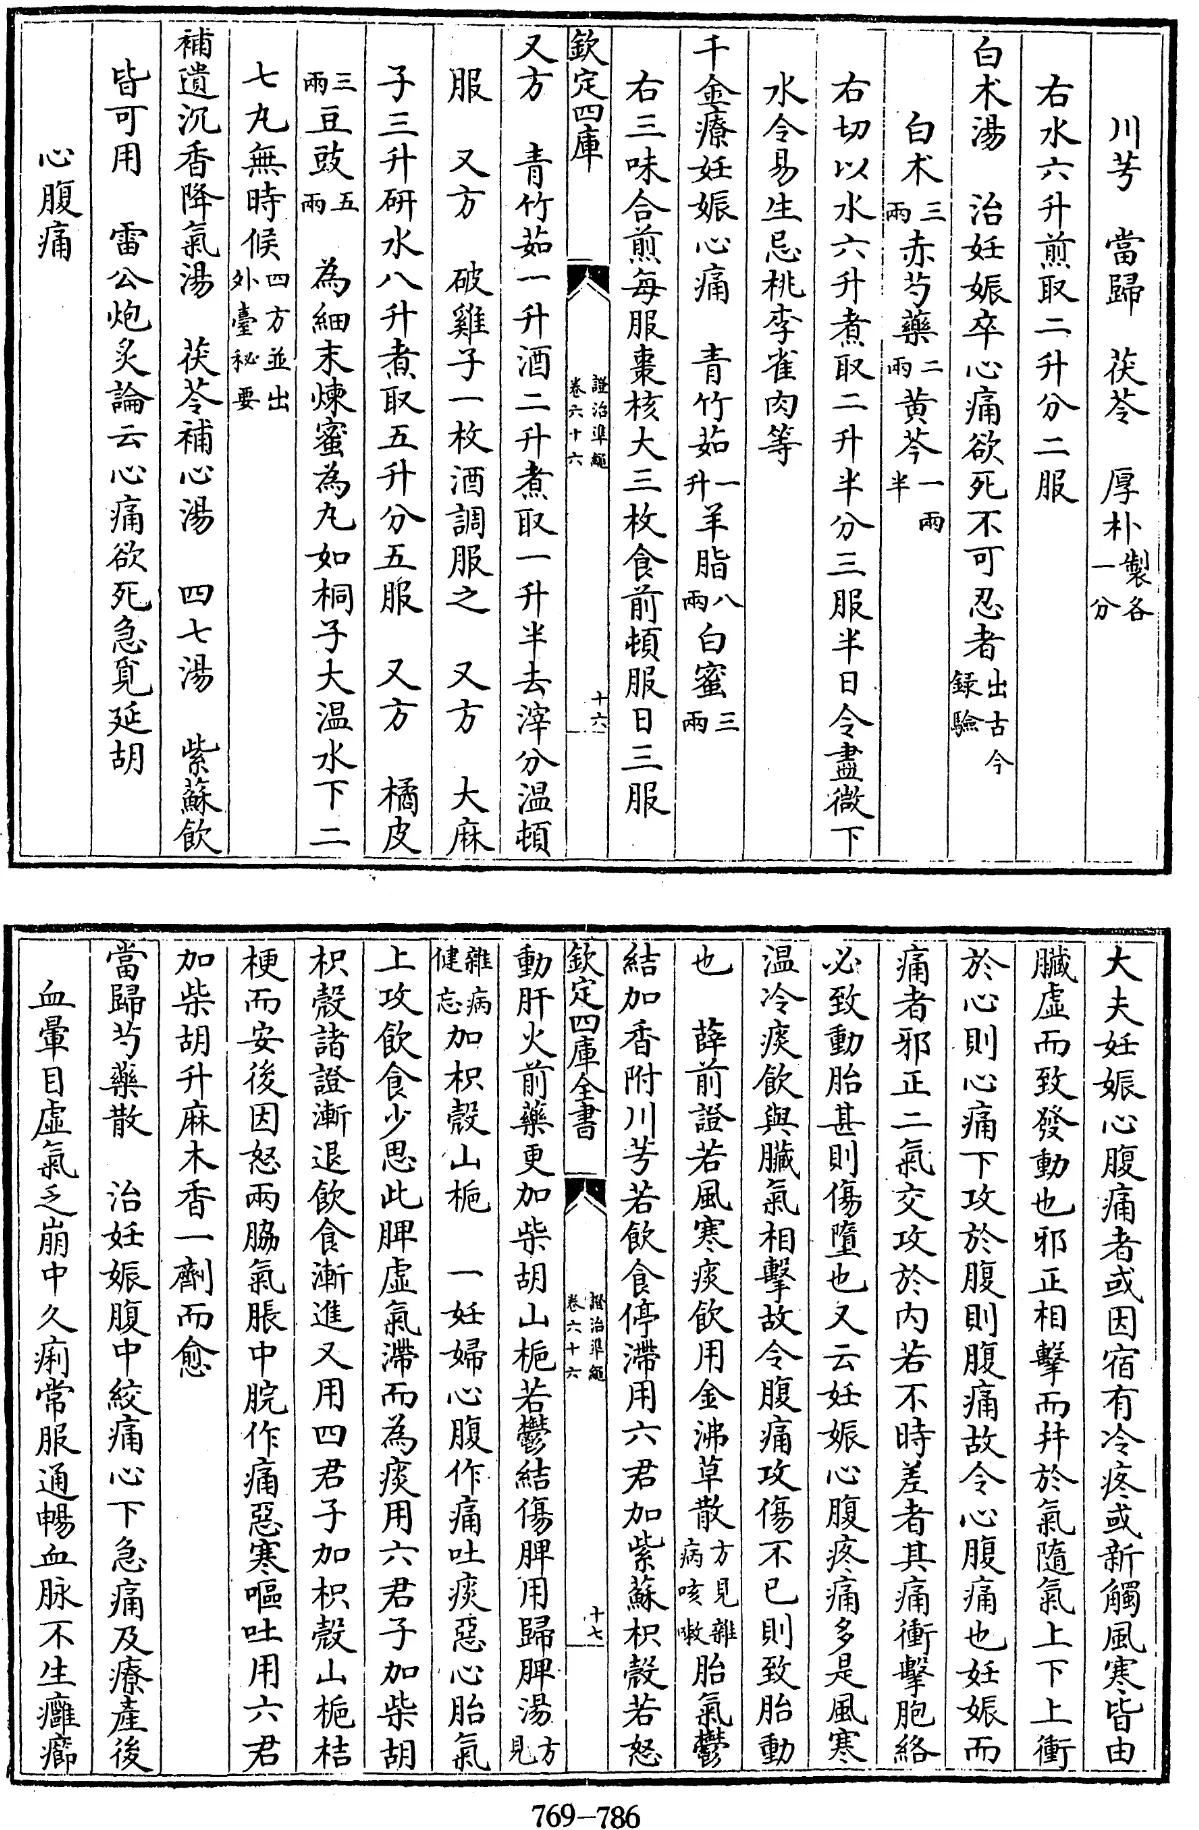 川芎　當歸　茯苓　厚朴製各一分
右水六升煎取二升分二服
白术湯　治妊娠卒心痛欲死不可忍者出古今録驗
白术三兩赤芍藥二兩黄芩一兩半
右切以水六升煮取二升半分三服半日令盡微下
水令易生忌桃李雀肉等
千金療妊娠心痛　青竹茹一升羊脂八兩白蜜三兩
右三味合煎每服棗核大三枚食前頓服日三服
欽定四庫　證治準繩卷六十六　十六
又方　青竹茹一升酒二升煮取一升半去滓分温頓
服　又方　破雞子一枚酒調服之　又方　大麻
子三升研水八升煮取五升分五服　又方　橘皮
三兩豆豉五兩　為細末煉蜜為丸如桐子大温水下二
七丸無時候四方並出外臺秘要
補遺沉香降氣湯　茯苓補心湯　四七湯　紫蘇飲
皆可用　雷公炮炙論云心痛欲死急覓延胡
心腹痛
大夫妊娠心腹痛者或因宿有冷疼或新觸風寒皆由
臟虛而致發動也邪正相擊而并於氣隨氣上下上衝
於心則心痛下攻於腹則腹痛故令心腹痛也妊娠而
痛者邪正二氣交攻於内若不時差者其痛衝擊胞絡
必致動胎甚則傷墮也又云妊娠心腹疼痛多是風寒
温冷痰飲與臟氣相擊故令腹痛攻傷不已則致胎動
也　薛前證若風寒痰飲用金沸草散方見雜病咳嗽胎氣鬱
結加香附川芎若飲食停滯用六君加紫蘇枳殼若怒
欽定四庫全書　證治準繩卷六十六　十七
動肝火前藥更加柴胡山梔若鬱結傷脾用歸脾湯方見
雜病健忘加枳殼山梔　一妊婦心腹作痛吐痰惡心胎氣
上攻飲食少思此脾虛氣滯而為痰用六君子加柴胡
枳殼諸證漸退飲食漸進又用四君子加枳殼山梔桔
梗而安後因怒兩脇氣脹中脘作痛惡寒嘔吐用六君
加柴胡升麻木香一劑而愈
當歸芍藥散　治妊娠腹中絞痛心下急痛及療產後
血暈目虛氣乏崩中久痢常服通暢血脉不生癰癤
769-786